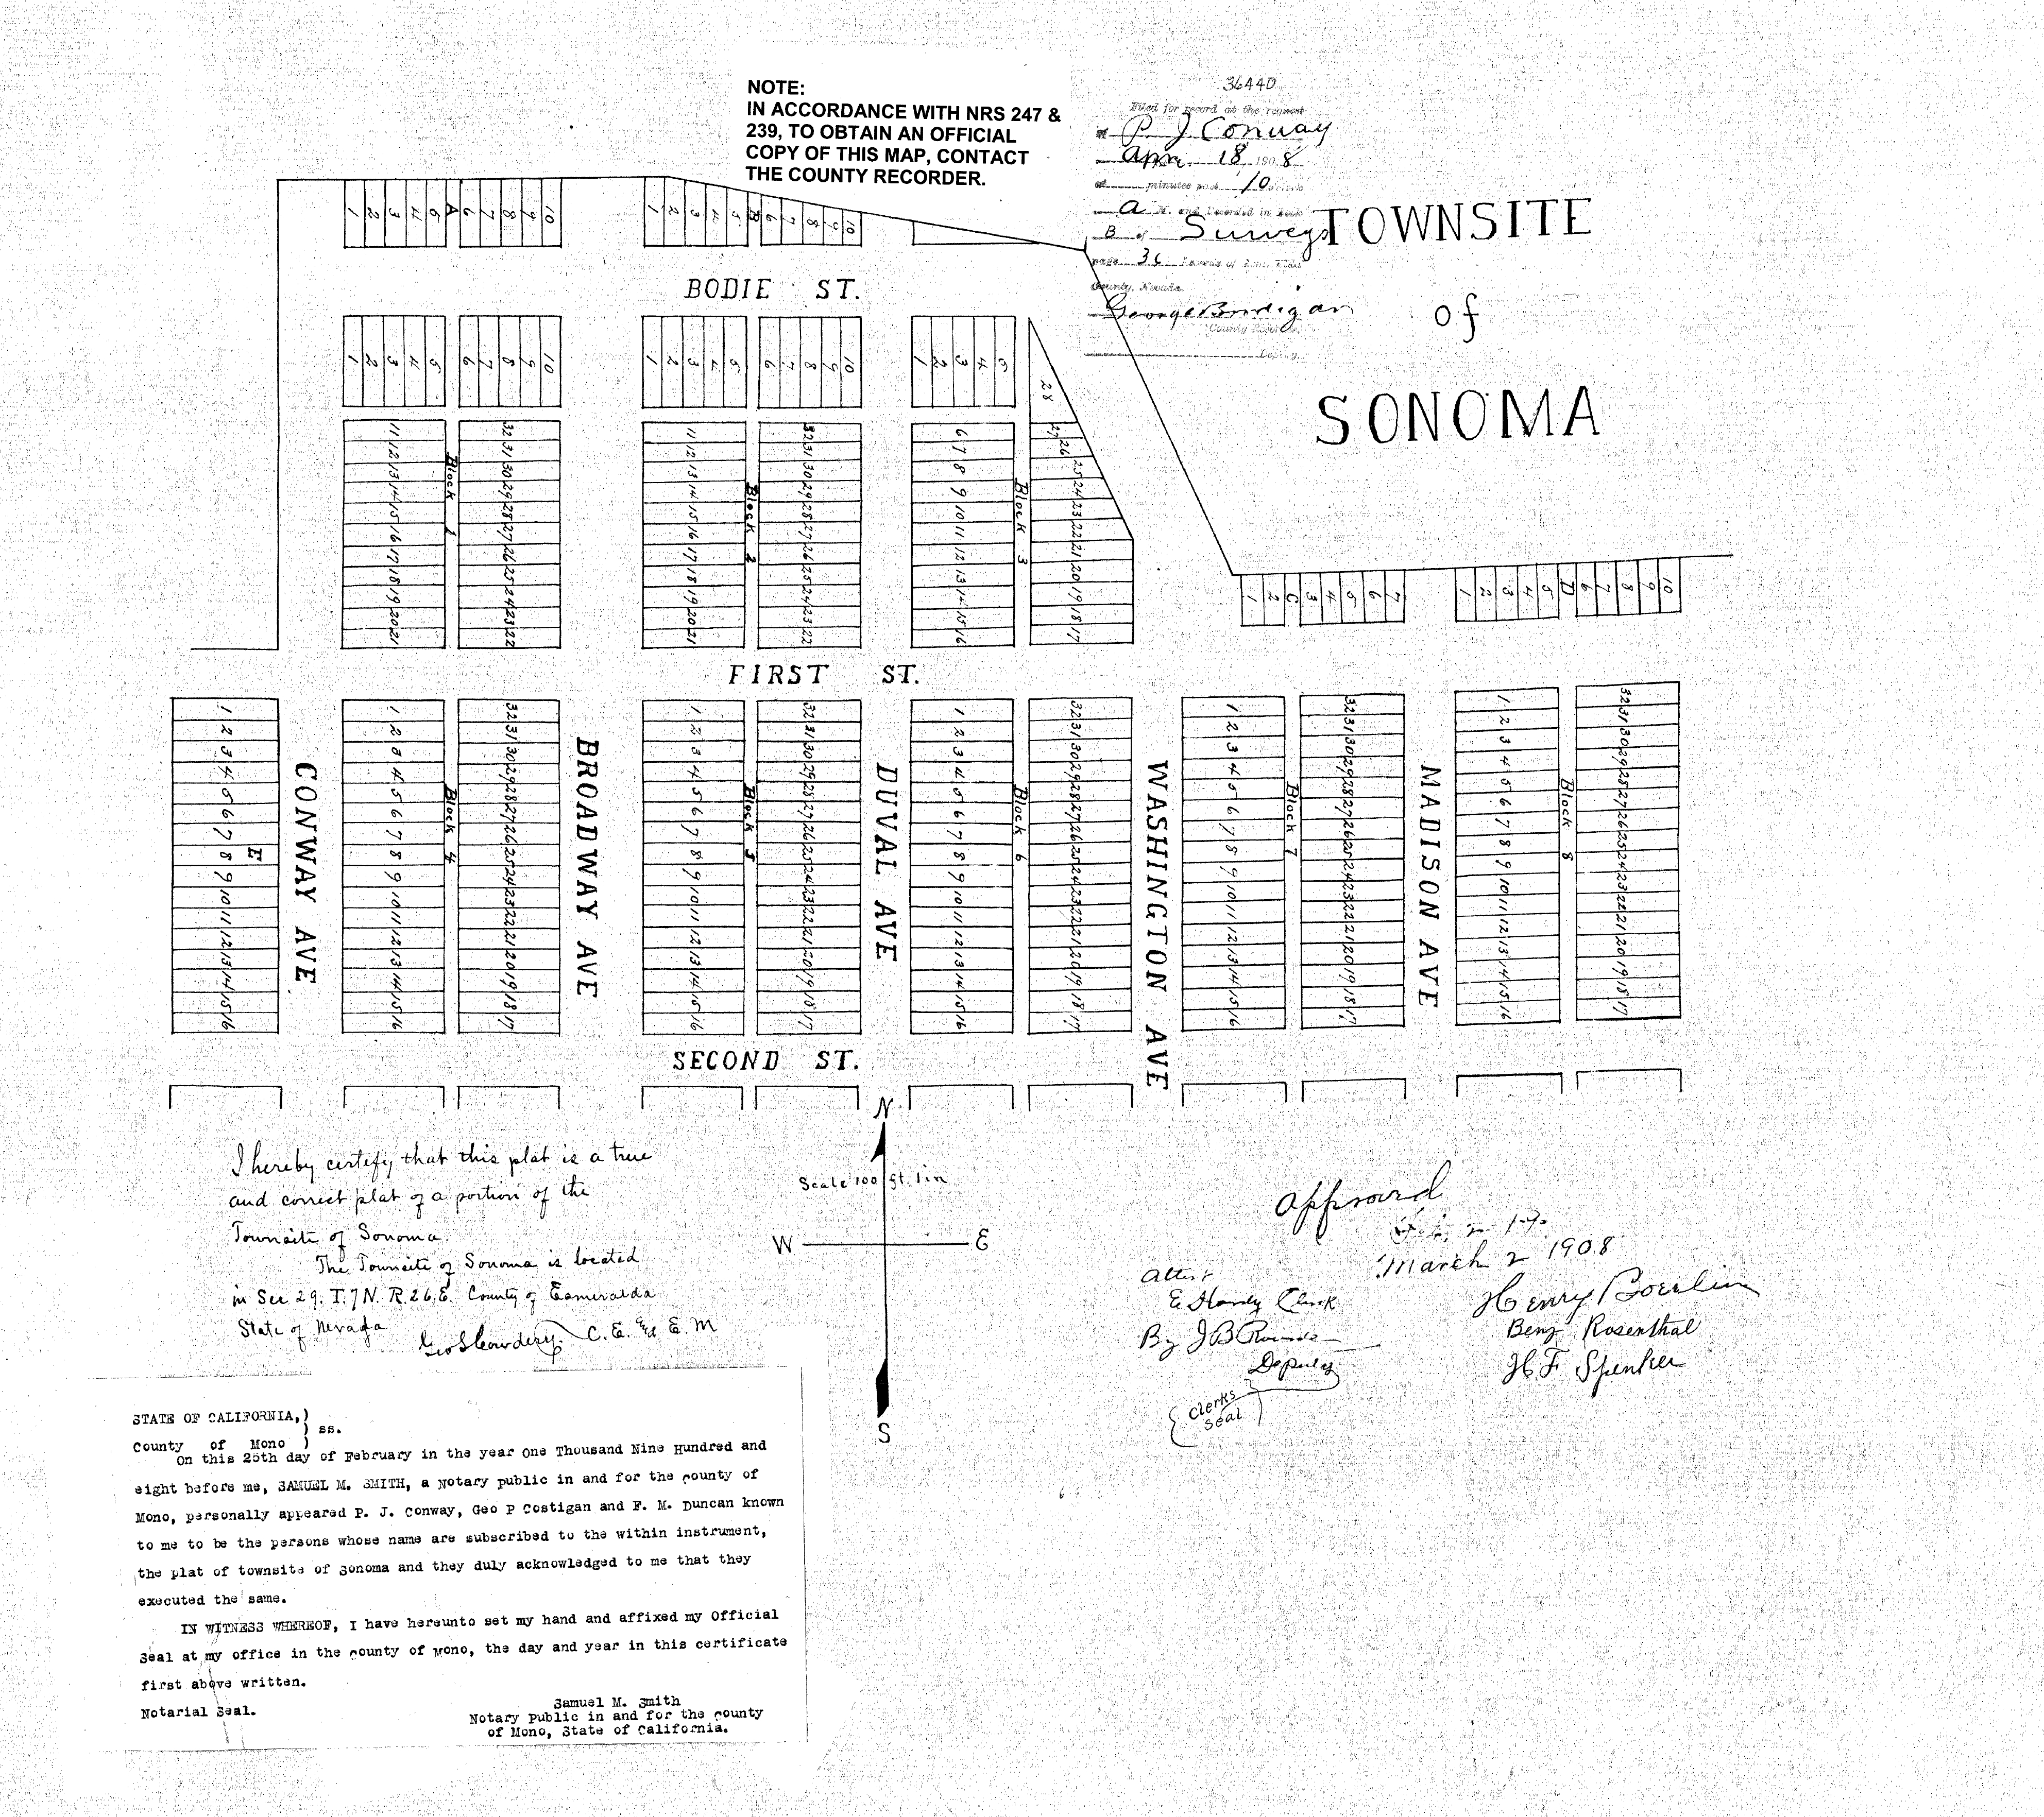 NOTE:
IN ACCORDANCE WITH NRS 247 &
239, TO OBTAIN AN OFFICIAL
COPY OF THIS MAP, CONTACT
THE COUNTY RECORDER.
36440
Filed for record at the request
of P. J. Conway
Apr. 18, 1908
at minutes past 10 o'clock
A M. and Recorded in Book
B of Surveys
page 36 Records of
County, Nevada.
County Recorder
Deputy
TOWNSITE
of
SONOMA
1 2 3 4 5 A 6 7 8 9 10
1 2 3 4 5 B 6 7 8 9 10
BODIE ST.
1 2 3 4 5 6 7 8 9 10
1 2 3 4 5 6 7 8 9 10
1 2 3 4 5
28
11 12 13 14 15 16 17 18 19 20 21
Block 1
32 31 30 29 28 27 26 25 24 23 22
11 12 13 14 15 16 17 18 19 20 21
Block 2
32 31 30 29 28 27 26 25 24 23 22
6 7 8 9 10 11 12 13 14 15 16
Block 3
27 26 25 24 23 22 21 20 19 18 17
1 2 C 3 4 5 6 7
1 2 3 4 5 D 6 7 8 9 10
FIRST ST.
1 2 3 4 5 6 7 8 9 10 11 12 13 14 15 16
E
CONWAY AVE
1 2 3 4 5 6 7 8 9 10 11 12 13 14 15 16
Block 4
32 31 30 29 28 27 26 25 24 23 22 21 20 19 18 17
BROADWAY AVE
1 2 3 4 5 6 7 8 9 10 11 12 13 14 15 16
Block 5
32 31 30 29 28 27 26 25 24 23 22 21 20 19 18 17
DUVAL AVE
1 2 3 4 5 6 7 8 9 10 11 12 13 14 15 16
Block 6
32 31 30 29 28 27 26 25 24 23 22 21 20 19 18 17
WASHINGTON AVE
1 2 3 4 5 6 7 8 9 10 11 12 13 14 15 16
Block 7
32 31 30 29 28 27 26 25 24 23 22 21 20 19 18 17
MADISON AVE
1 2 3 4 5 6 7 8 9 10 11 12 13 14 15 16
Block 8
32 31 30 29 28 27 26 25 24 23 22 21 20 19 18 17
SECOND ST.
N
Scale 100 ft. 1 in
W E
S
I hereby certify that this plat is a true
and correct plat of a portion of the
Townsite of Sonoma.
The Townsite of Sonoma is located
in Sec 29. T.7N. R.26.E. County of Esmeralda
State of Nevada
Geo S Cowdery C.E. and E.M
Approved
March 2 1908
Henry Boerlin
Benj Rosenthal
H. F. Spenker
Attest
E Hardy Clerk
By J B
Deputy
Clerks
Seal
STATE OF CALIFORNIA,)
) ss.
County of Mono )
On this 25th day of February in the year One Thousand Nine Hundred and
eight before me, SAMUEL M. SMITH, a Notary public in and for the county of
Mono, personally appeared P. J. Conway, Geo P Costigan and F. M. Duncan known
to me to be the persons whose name are subscribed to the within instrument,
the plat of townsite of Sonoma and they duly acknowledged to me that they
executed the same.
IN WITNESS WHEREOF, I have hereunto set my hand and affixed my Official
Seal at my office in the county of Mono, the day and year in this certificate
first above written.
Notarial Seal.
Samuel M. Smith
Notary Public in and for the county
of Mono, State of California.